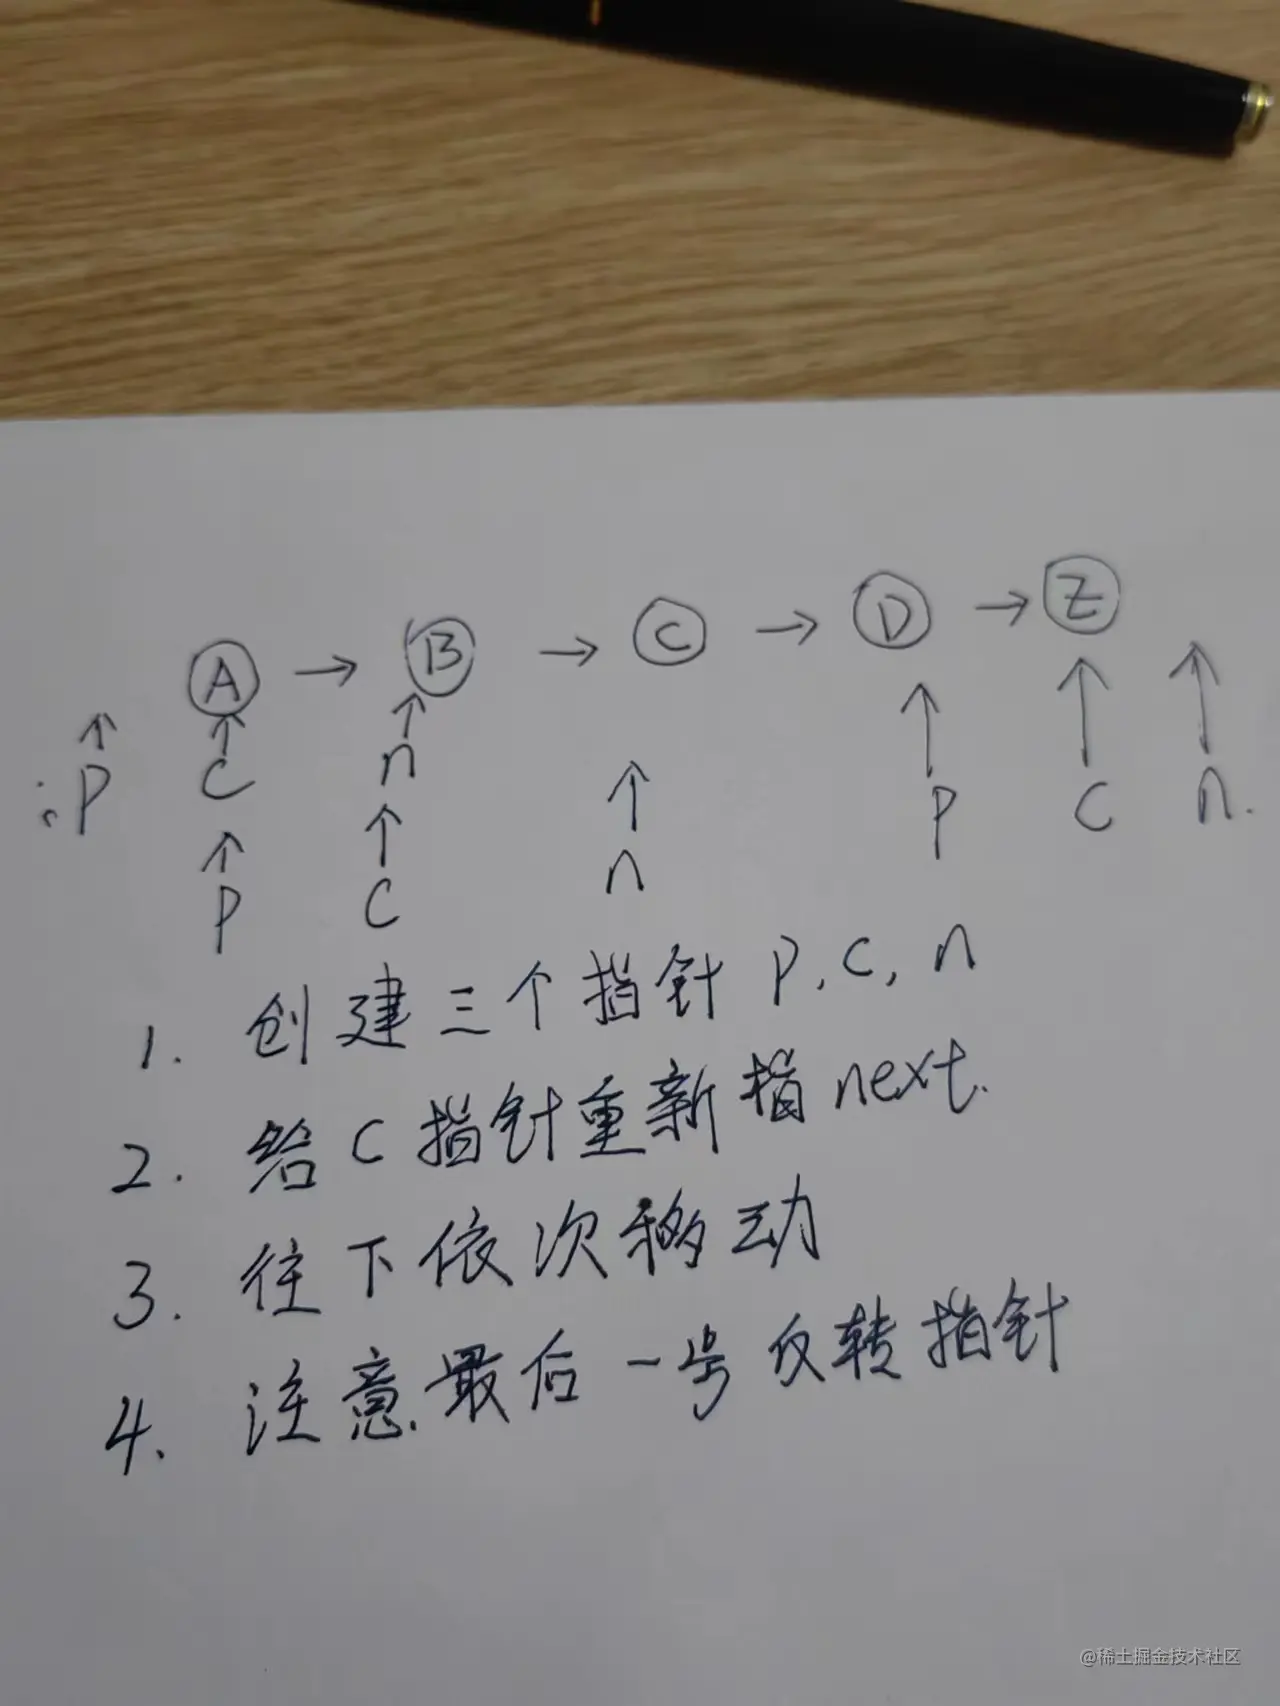 A → B → C → D → Z
P C n P C n.
P C n
1. 创建三个指针 P, C, n
2. 给 C 指针重新指 next.
3. 往下依次移动
4. 注意.最后一号反转指针
@稀土掘金技术社区